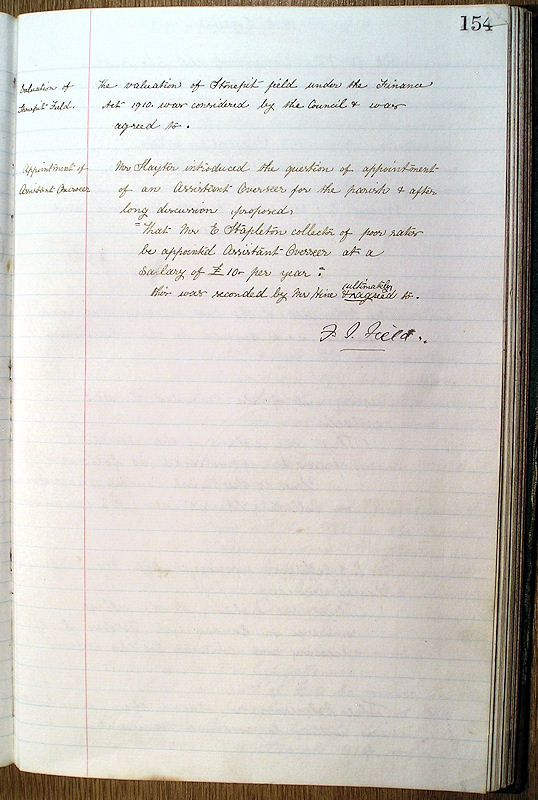 154
Valuation of
Stonepit Field.
The valuation of Stonepit field under the Finance
Act 1910. was considered by the Council & was
agreed to.
Appointment of
Assistant Overseer
Mr Hayter introduced the question of appointment
of an Assistant Overseer for the parish & after
long discussion proposed,
"That Mr E Stapleton collector of poor rates
be appointed Assistant Overseer at a
Sallary of £10 - per year."
this was seconded by Mr Hine & ultimately agreed to.
F. J. Field.